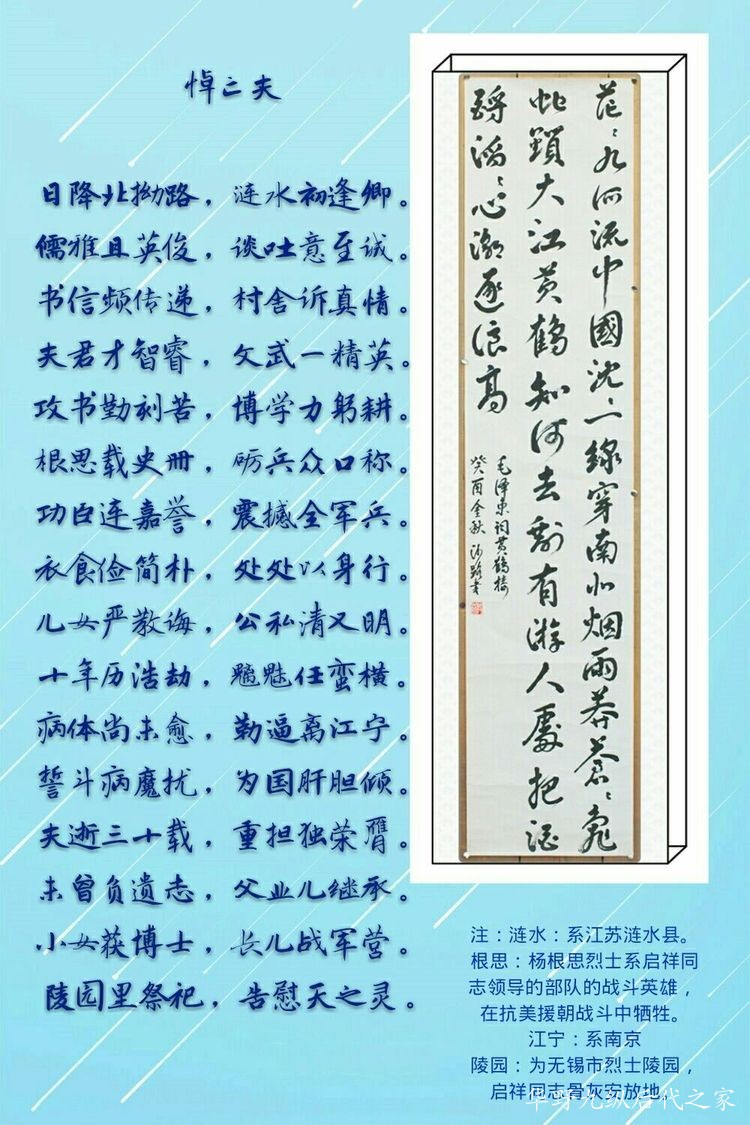 悼亡夫
日降北拗路，涟水初逢卿。
儒雅且英俊，谈吐意至诚。
书信频传递，村舍诉真情。
夫君才智睿，文武一精英。
攻书勤刻苦，博学力躬耕。
根思载史册，砺兵众口称。
功臣连嘉誉，震撼全军兵。
衣食俭简朴，处处以身行。
儿女严教诲，公私清又明。
十年历浩劫，魑魅任蛮横。
病体尚未愈，勒逼离江宁。
誓斗病魔扰，为国肝胆倾。
夫逝三十载，重担独荣膺。
未曾负遗志，父业儿继承。
小女获博士，长儿战军营。
陵园里祭祀，告慰天之灵。
茫茫九派流中國沈沈一線穿南北烟雨莽蒼蒼龜
蛇鎖大江黄鶴知何去剩有游人處把酒
酹滔滔心潮逐浪高
毛澤東词黄鶴楼
癸酉金秋
注：涟水：系江苏涟水县。
根思：杨根思烈士系启祥同
志领导的部队的战斗英雄，
在抗美援朝战斗中牺牲。
江宁：系南京
陵园：为无锡市烈士陵园，
启祥同志骨灰安放地。
华野九纵后代之家